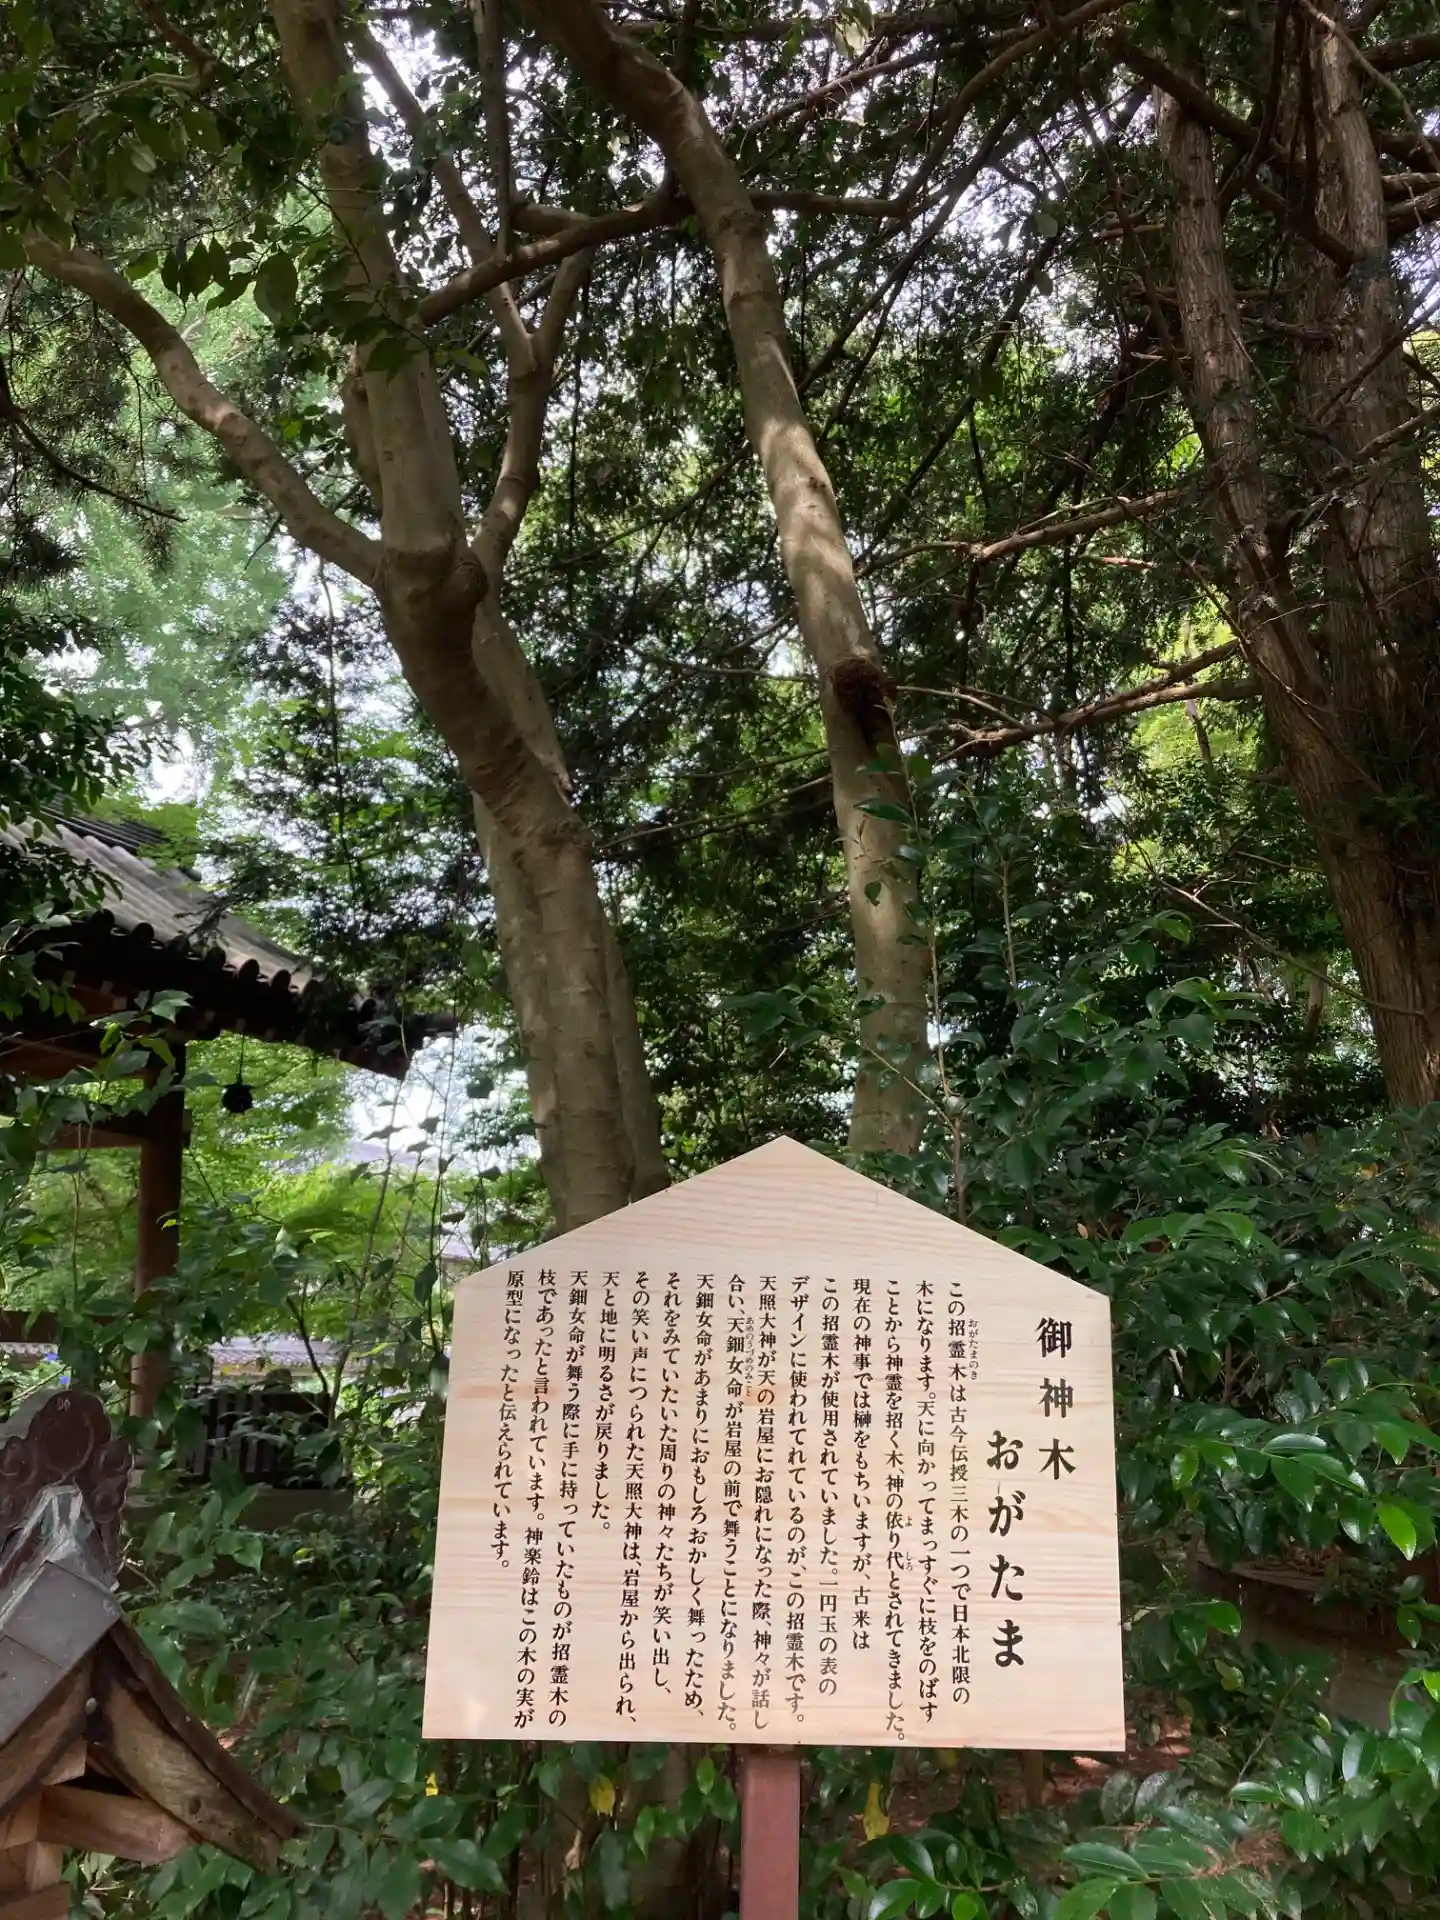 御神木
おがたま
この招霊木は古今伝授三木の一つで日本北限の
おがたまのき
木になります。天に向かってまっすぐに枝をのばす
ことから神霊を招く木、神の依り代とされてきました。
よ しろ
現在の神事では榊をもちいますが、古来は
この招霊木が使用されていました。一円玉の表の
デザインに使われてれているのが、この招霊木です。
天照大神が天の岩屋にお隠れになった際、神々が話し
合い、天鈿女命が岩屋の前で舞うことになりました。
あめのうづめのみこと
天鈿女命があまりにおもしろおかしく舞ったため、
それをみていたいた周りの神々たちが笑い出し、
その笑い声につられた天照大神は、岩屋から出られ、
天と地に明るさが戻りました。
天鈿女命が舞う際に手に持っていたものが招霊木の
枝であったと言われています。神楽鈴はこの木の実が
原型になったと伝えられています。